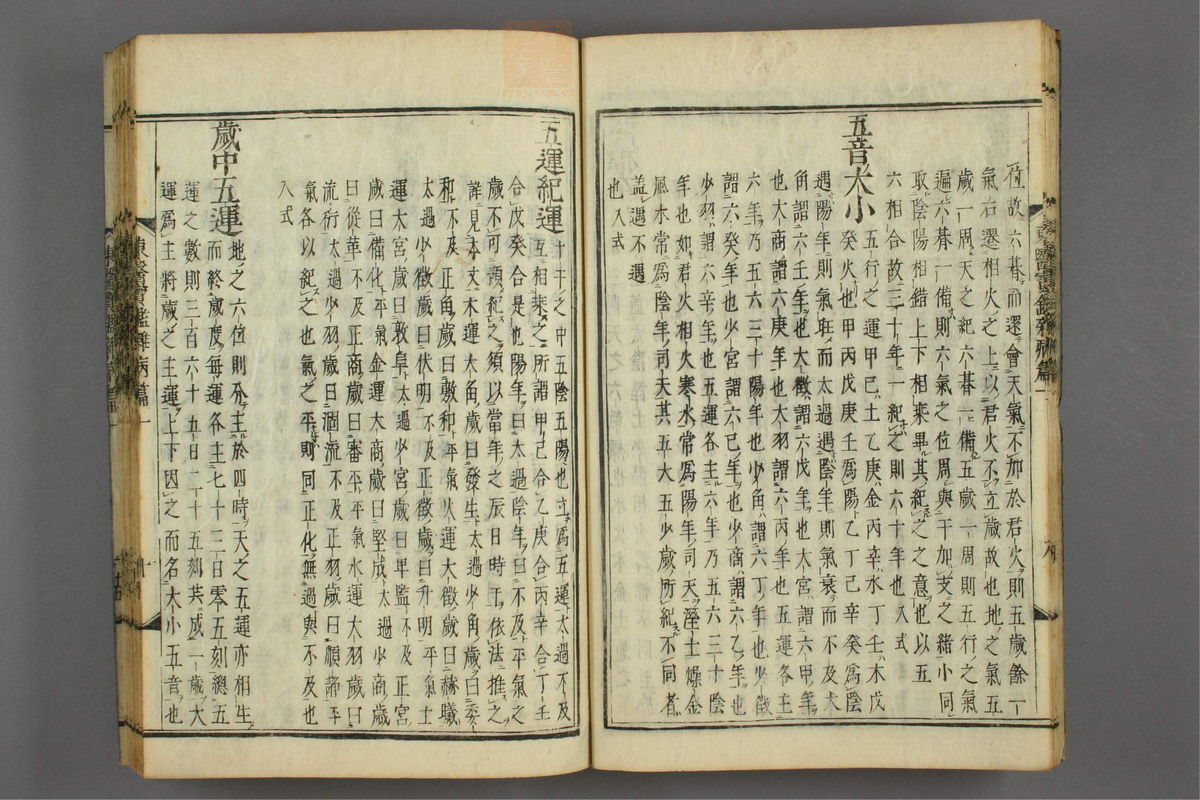 位故六朞而還會天氣不加於君火則五歲餘一
氣右遷相火之上以君火不立歲故也地之氣五
歲一周天之紀六朞一備五歲一周則五行之氣
遍六朞一備則六氣之位周與干加支之緒小同
取陰陽相錯上下相來異其紀之之意也以五
六相合故三十年一紀之則六十年也入式
五音大小 五行之運甲己土乙庚金丙辛水丁壬木戊
癸火也甲丙戊庚壬爲陽乙丁己辛癸爲陰
遇陽年則氣旺而太過遇陰年則氣衰而不及大
角謂六壬年也大徵謂六戊年也大宮謂六甲年
也大商謂六庚年也大羽謂六丙年也五運各主
六年乃五六三十陽年也少角謂六丁年也少徵
謂六癸年也少宮謂六己年也少商謂六乙年也
少羽謂六辛年也五運各主六年乃五六三十陰
年也如君火相火寒水常爲陽年司天濕土燥金
風水常爲陰年司天其五大五少歲所紀不同者
盖遇不遇
也入式
五運紀運 十干之中五陰五陽也立爲五運太過不及
互相乘之所謂甲己合乙庚合丙辛合丁壬
合戊癸合是也陽年曰太過陰年曰不及平氣之
歲不可預紀之須以當年之辰日時干依法推之
詳見本文木運大角歲曰發生太過少角歲曰委
和不及正角歲曰敷和平氣火運大徵歲曰赫曦
太過少徵歲曰伏明不及正徵歲曰升明平氣土
運大宮歲曰敦阜太過少宮歲曰卑監不及正宮
歲曰備化平氣金運大商歲曰堅成太過少商歲
曰從革不及正商歲曰審平平氣水運大羽歲曰
流衍太過少羽歲曰涸流不及正羽歲曰順諦平
氣各以紀之也氣之平則同正化無過與不及也
入式
歲中五運 地之六位則分主於四時天之五運亦相生
而終歲度每運各主七十二日零五刻總五
運之數則三百六十五日二十五刻共成一歲大
運爲主將歲之主運上下因之而名大小五音也
東醫寶鑑雜病篇一